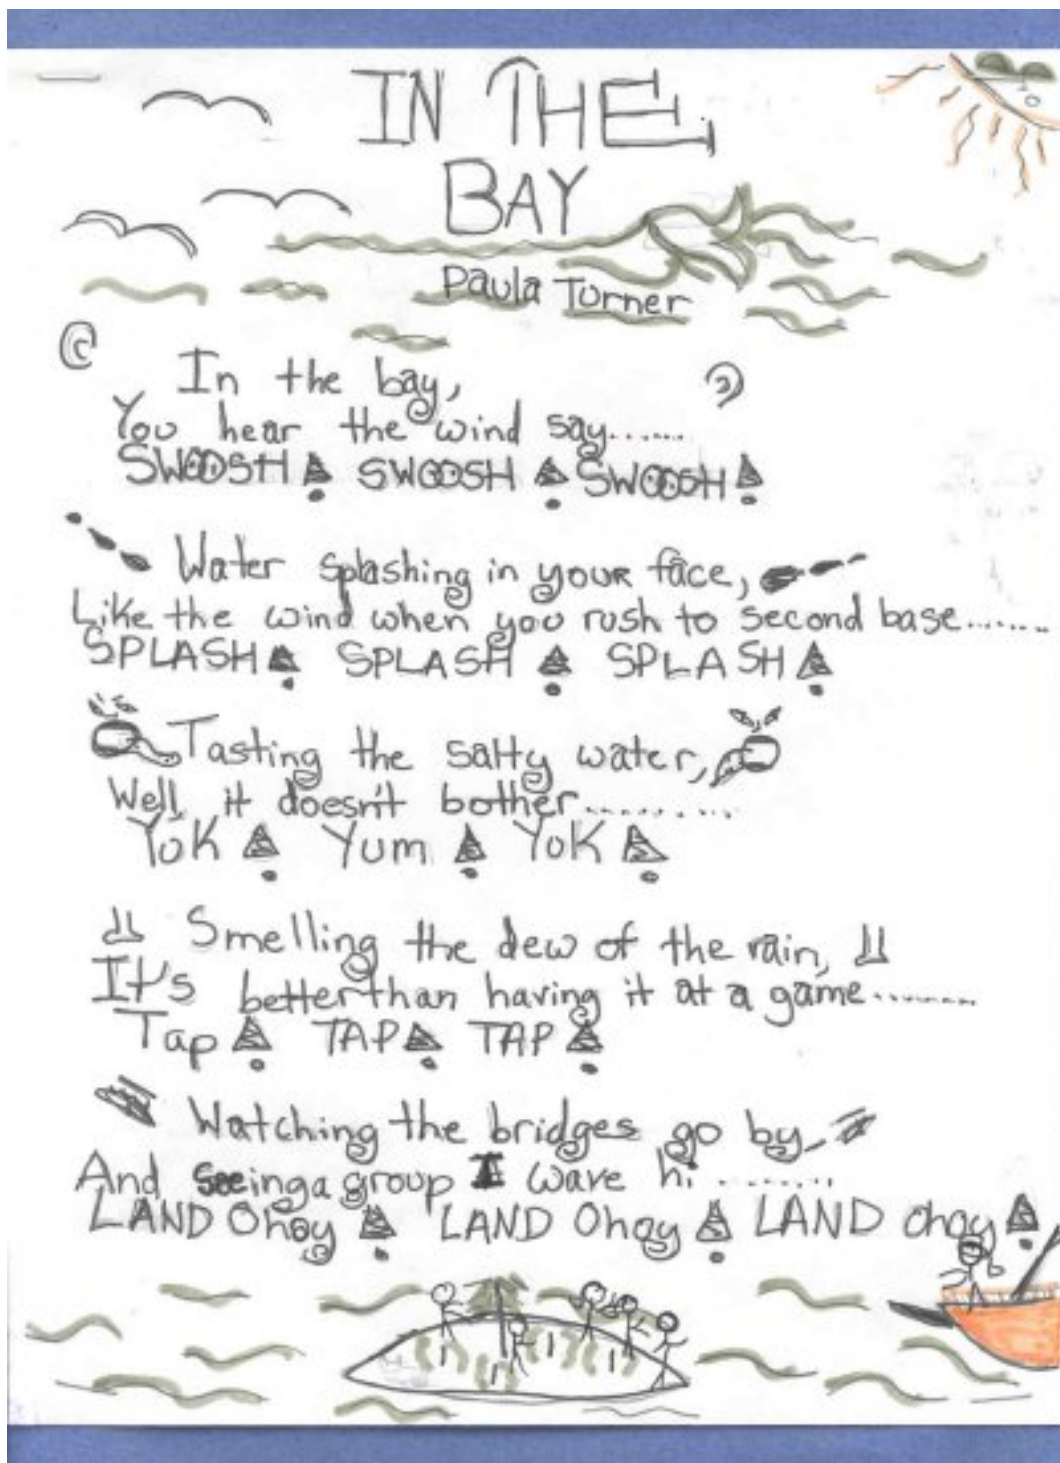 IN THE
BAY
Paula Turner
In the bay,
You hear the wind say......
SWOOSH! SWOOSH! SWOOOSH!
Water splashing in your face,
Like the wind when you rush to second base.......
SPLASH! SPLASH! SPLASH!
Tasting the salty water,
Well, it doesn't bother..........
YuK! Yum! YuK!
Smelling the dew of the rain,
It's better than having it at a game.........
Tap! TAP! TAP!
Watching the bridges go by
And seeing a group I wave hi ........
LAND Ohoy! LAND Ohoy! LAND Ohoy!